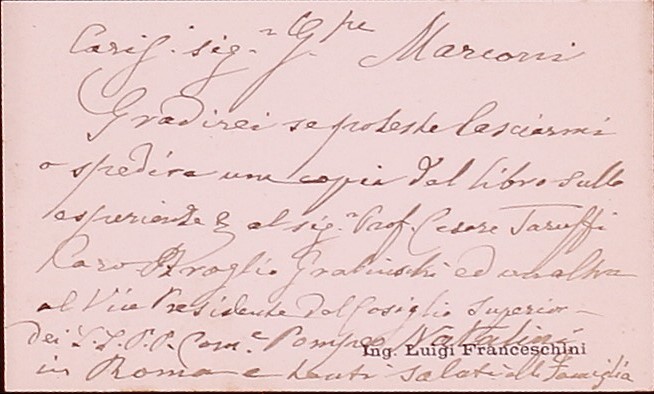 Caris. sig.r Gpe Marconi
Gradirei se poteste lasciarmi
o spedire una copia del libro sulle
esperienze & al sig.r Prof. Cesare Taruffi
ed un altra
al Vice Presidente del Cosiglio Superior
dei L.L.P.P. Com.e Pompeo Natalini
Ing. Luigi Franceschini
in Roma e tanti saluti alla Famiglia